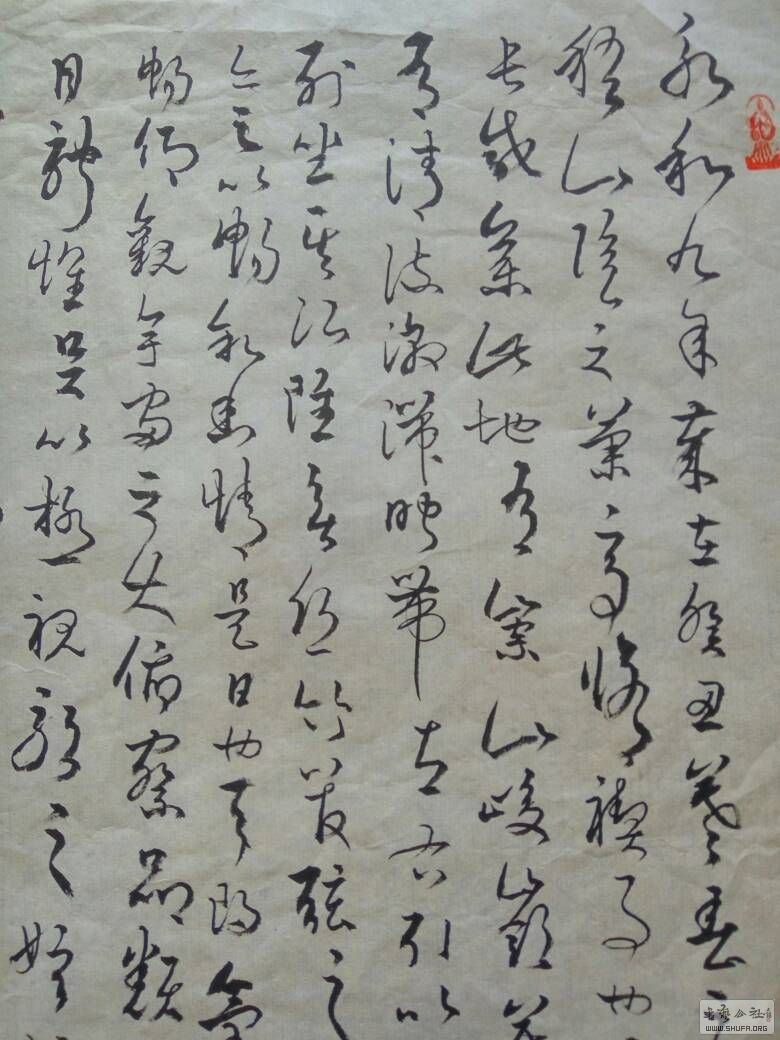 永和九年歲在癸丑暮春之
稽山陰之蘭亭修禊事也
長咸集此地有崇山峻嶺茂
有清流激湍映帶左右引以
列坐其次雖無絲竹管弦之
亦足以暢敘幽情是日也天朗氣
暢仰觀宇宙之大俯察品類
目騁懷足以極視聽之娛
书法公社
WWW.SHUFA.ORG